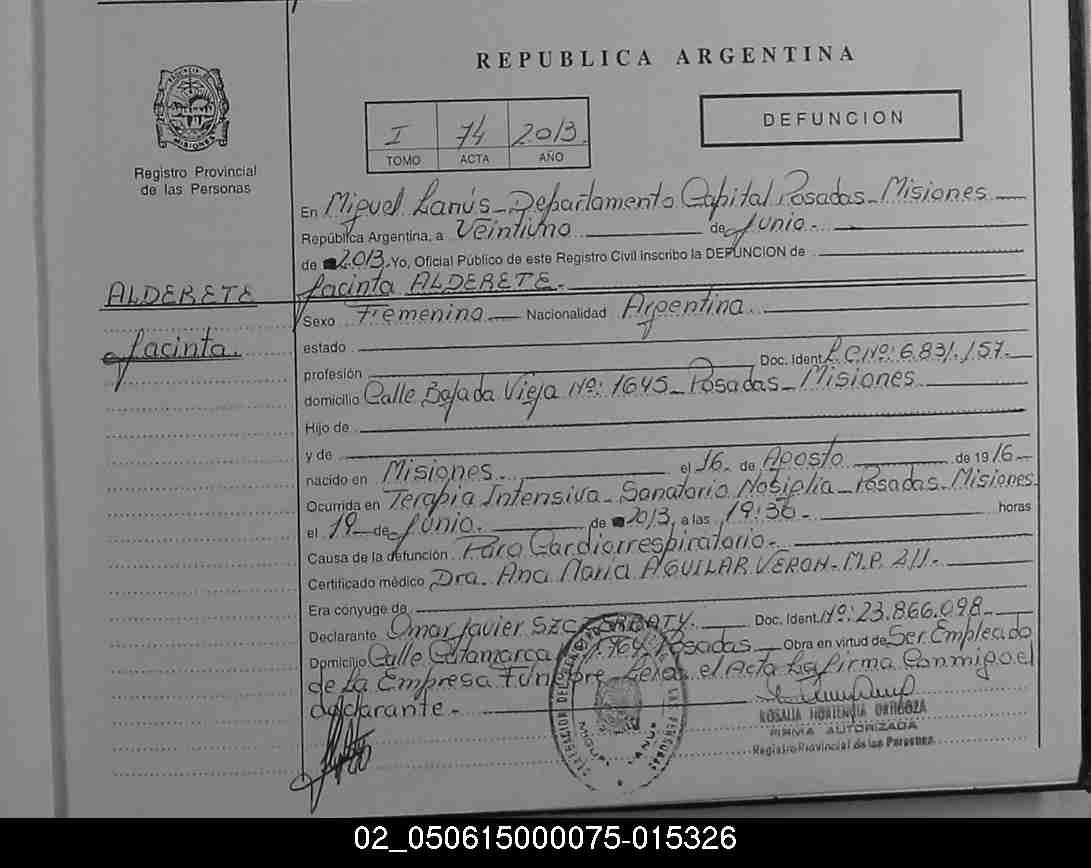 REPUBLICA ARGENTINA
MISIONES
Registro Provincial
de las Personas
I 74 2013.
TOMO ACTA AÑO
DEFUNCION
En Miguel Lanús - Departamento Capital Posadas - Misiones
República Argentina, a Veintiuno de Junio.
de 2013. Yo, Oficial Público de este Registro Civil inscribo la DEFUNCION de
Jacinta ALDERETE.
ALDERETE
Jacinta.
Sexo Femenino Nacionalidad Argentina.
estado
profesión Doc. Ident. L.C.Nº: 6.831.157.
domicilio Calle Bajada Vieja Nº: 1645 - Posadas - Misiones
Hijo de
y de
nacido en Misiones. el 16. de Agosto de 1916.
Ocurrida en Terapia Intensiva - Sanatorio Nosiglia - Posadas - Misiones
el 19 de Junio. de 2013, a las 19:36. horas
Causa de la defunción Paro Cardiorrespiratorio.
Certificado médico Dra. Ana Maria AGUILAR VERON - M.P.
Era cónyuge de
Declarante Omar Javier Doc. Ident. Nº: 23.866.098.
Domicilio Calle Catamarca Posadas Obra en virtud de Ser Empleado
de La Empresa Fúnebre - el Acta La firma Conmigo el
declarante.
ROSALIA HORTENCIA ORTEGOZA
FIRMA AUTORIZADA
Registro Provincial de las Personas
02_050615000075-015326